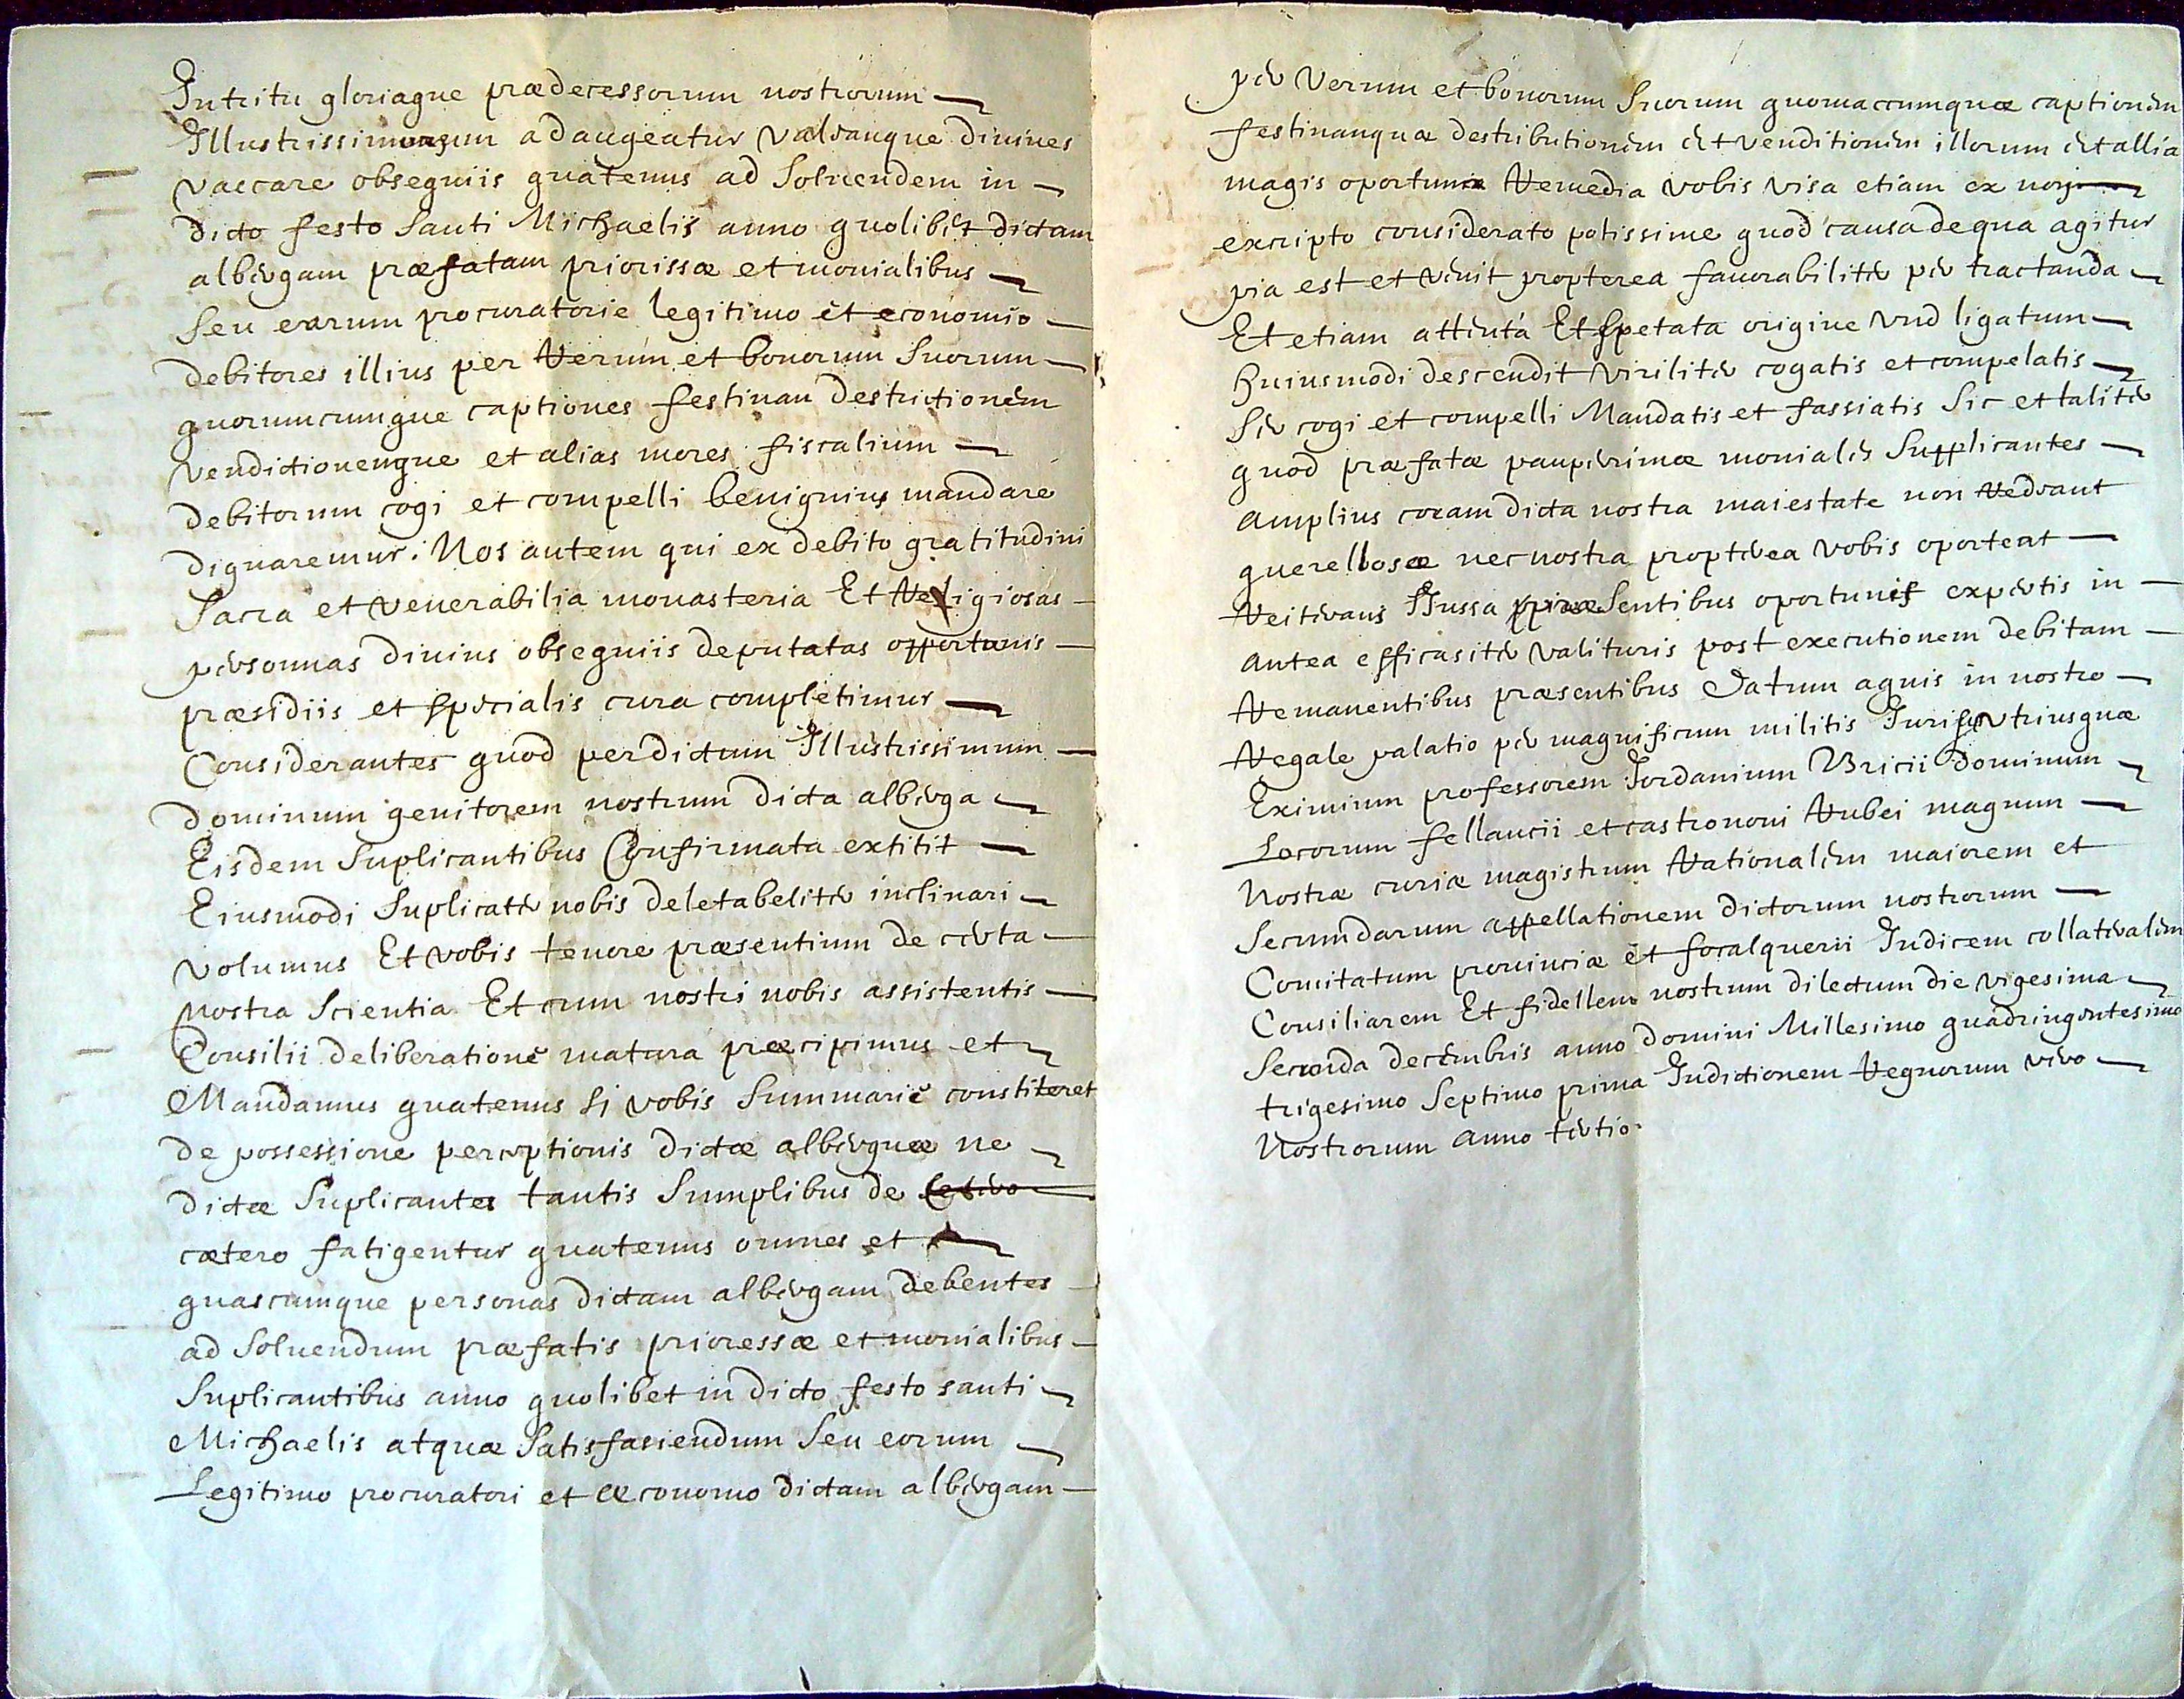 Intuitu gloriaque prædecessorum nostrorum
Illustrissimorum adaugeatur valeanque divines
vaccare obsequiis quatenus ad Solvendem in
dicto festo Santi Michaelis anno quolibet dictam
albergam præfatam priorissæ et monialibus
Seu earum procuratorie legitimo et economio
debitores illius per rerum et bonorum Suorum
quorumcumque captiones festinan destrictionem
vendictionenque et alias mores fiscalium
debitorum cogi et compelli benignius mandare
dignaremur. Nos autem qui ex debito gratitudini
Sacra et venerabilia monasteria Et religiosas
personnas divinis obsequiis deputatas opportunis
præsidiis et specialis cura completimur
Considerantes quod per dictum Illustrissimum
dominum genitorem nostrum dicta alberga
Eisdem Suplicantibus Confirmata extitit
Eiusmodi Suplicater nobis deletabeliter inclinari
volumus Et vobis tenore præsentium de certa
nostra Scientia Et cum nostri nobis assistentis
Consilii deliberatione matura præcipimus et
Mandamus quatenus si vobis Summarie constiteret
de possessione perceptionis dictæ albergnæ ne
dictæ Suplicantes tantis Sumptibus de
cætero fatigentur quatenus omnes et
quascumque personas dictam albergam debentes
ad Solvendum præfatis prioressæ et monialibus
Suplicantibus anno quolibet in dicto festo santi
Michaelis atquæ Satisfasiendum Seu eorum
Legitimo procuratori et œconomo dictam albergam
per rerum et bonorum Suorum quomaccumquæ captionem
festinanquæ destributionem et venditionem illorum et allia
magis oportuna remedia vobis visa etiam ex non
excripto considerato potissime quod causa de qua agitur
pia est et venit propterea favorabiliter per tractanda
Et etiam attenta Et spetata origine und ligatum
huiusmodi descendit viriliter cogatis et compelatis
Ser cogi et compelli Mandatis et fassiatis Sic et taliter
quod præfatæ pauperimæ moniales Supplicantes
amplius coram dicta nostra maiestate non redeant
querellosæ nec nostra propterea vobis oporteat
reiterans Jussa præsentibus oportunis expertis in
antea efficasiter valituris post executionem debitam
remanentibus præsentibus datum aquis in nostro
regale palatio per magnificum militis Juris utriusquæ
Eximium professorem Jordanium Bricii dominum
Locorum fellancii et castrononi rubei magnum
nostræ curiæ magistrum rationalem maiorem et
Secumdarum appellationem dictorum nostrorum
Comitatum provinciæ et focalquerii Judicem collateralem
Consiliarem Et fidellem nostrum dilectum die vigesima
Seconda decembris anno domini Millesimo quadringentesimo
trigesimo Septimo prima Indictionem regnorum vero
nostrorum anno tertio.